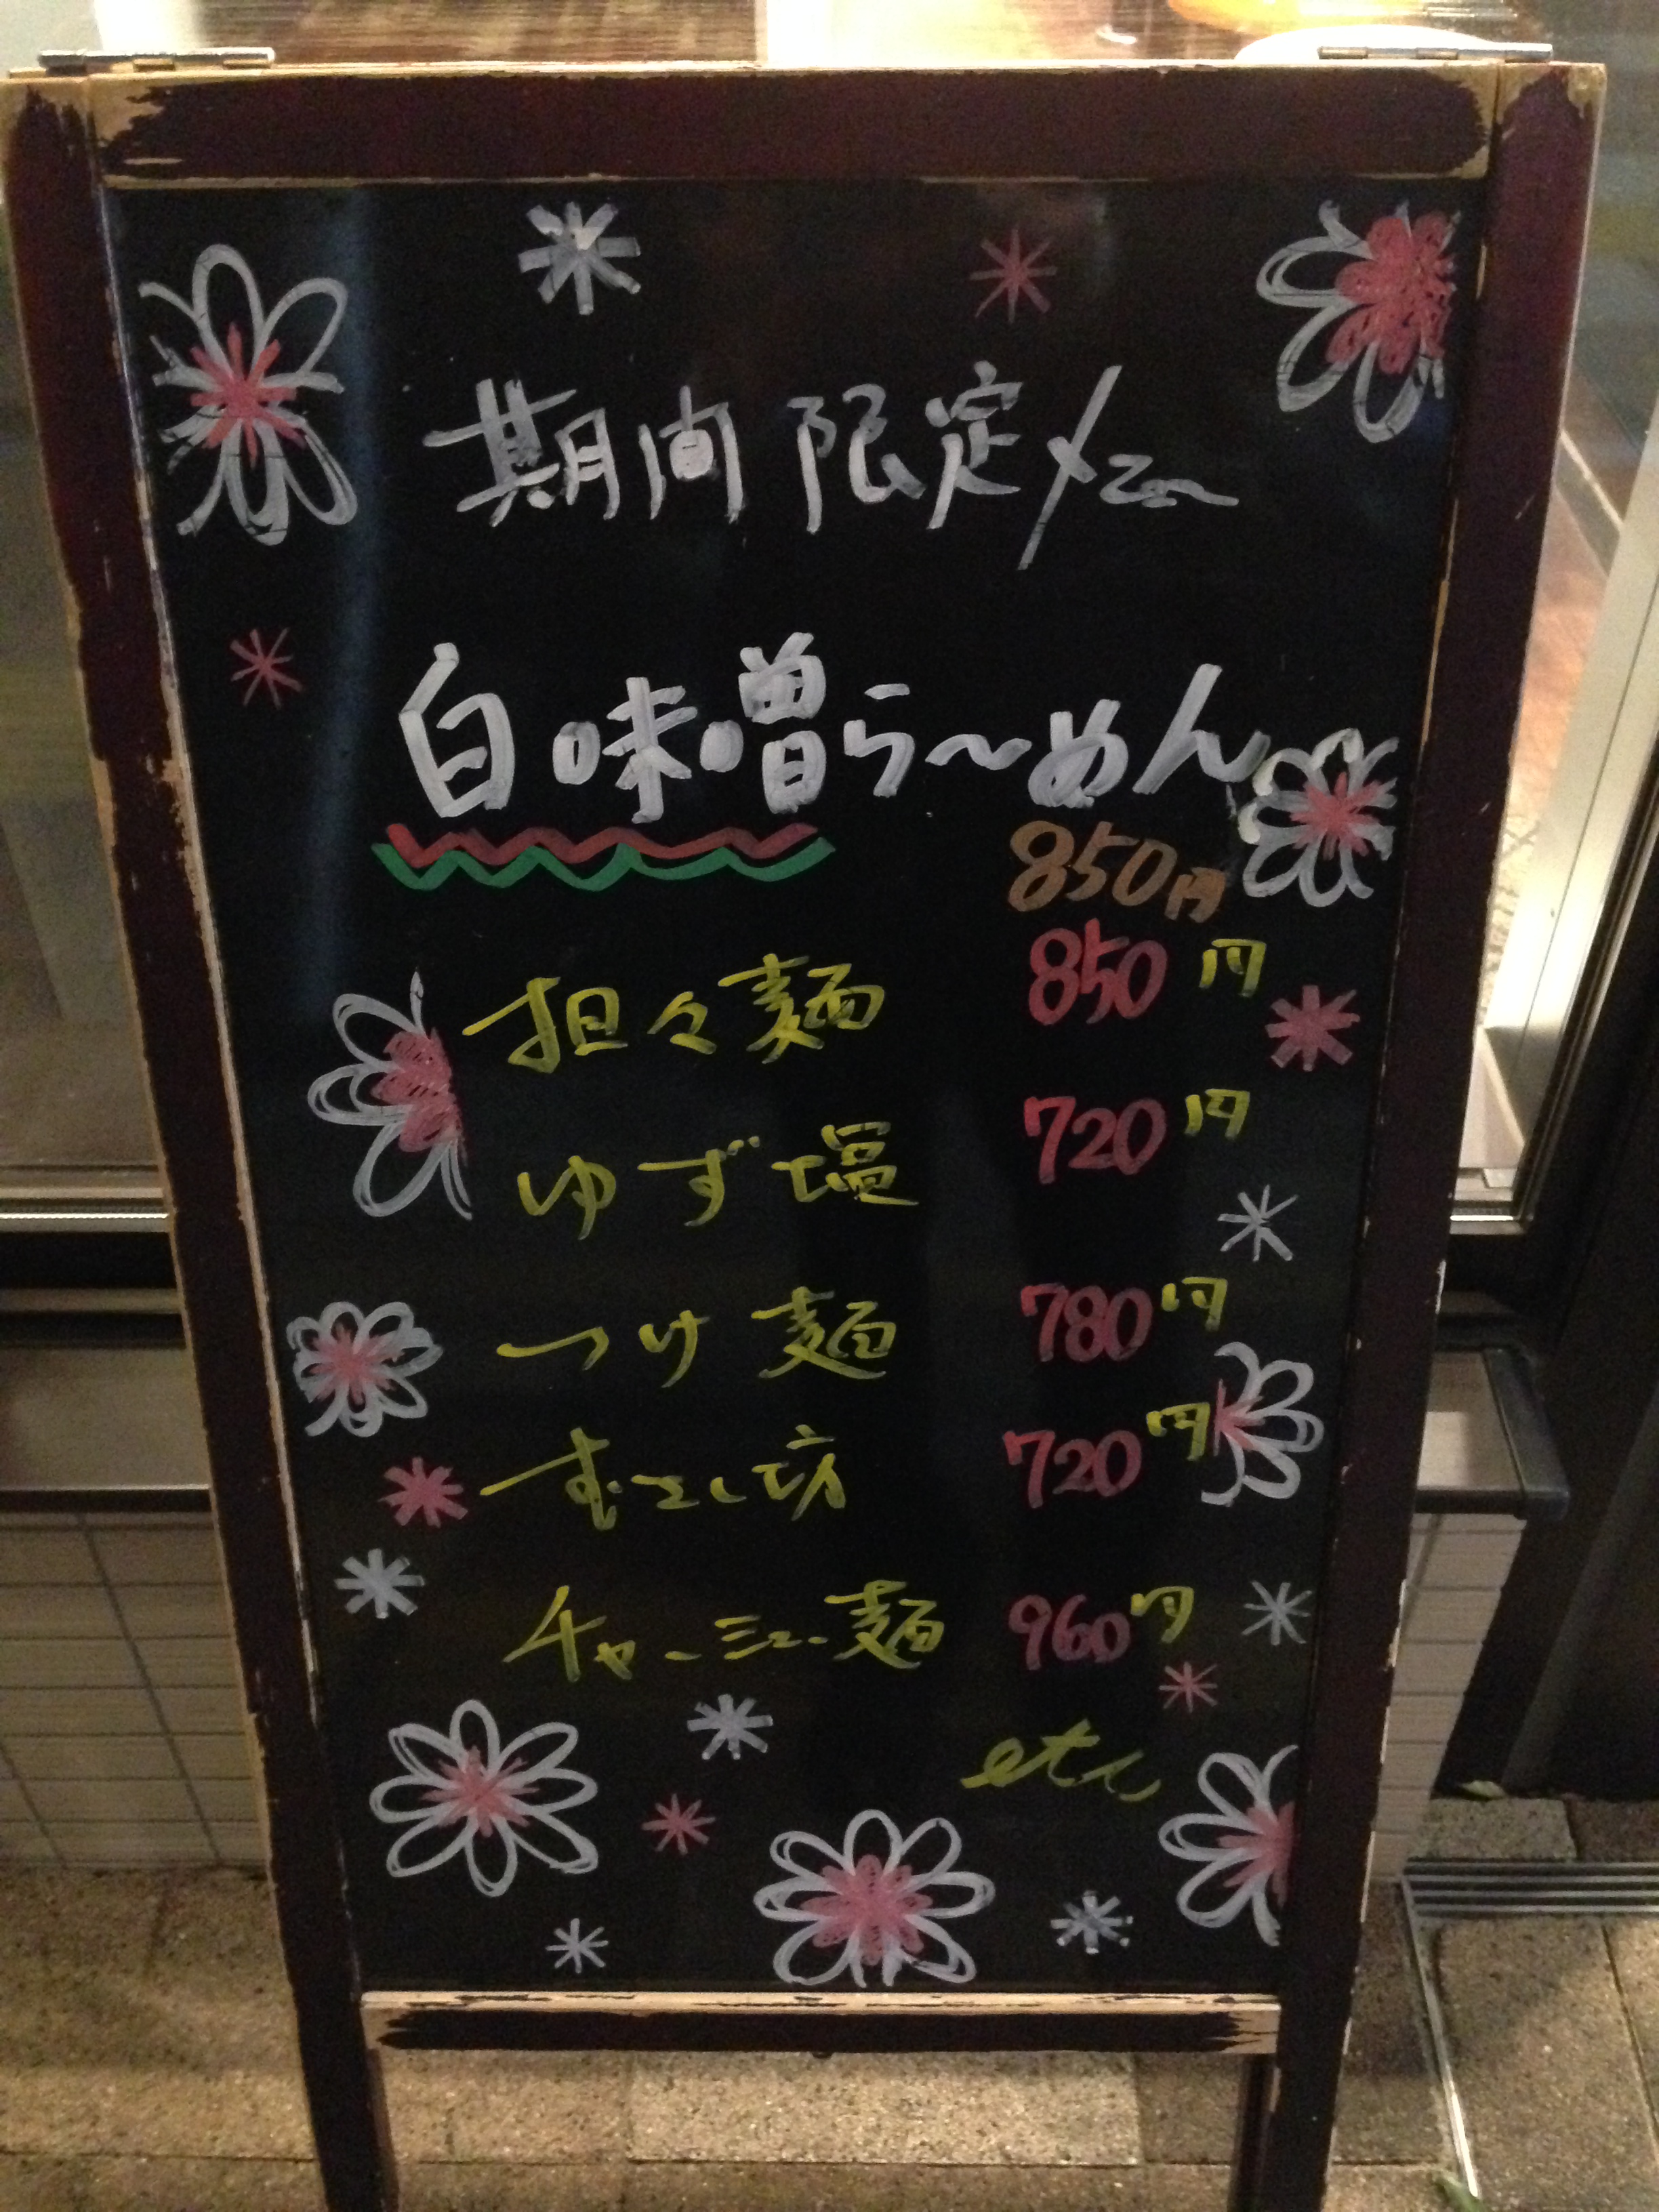 期間限定メニュー
白味噌ら〜めん
850円
担々麺 850円
ゆず塩 720円
つけ麺 780円
むさし坊 720円
チャーシュー麺 960円
etc